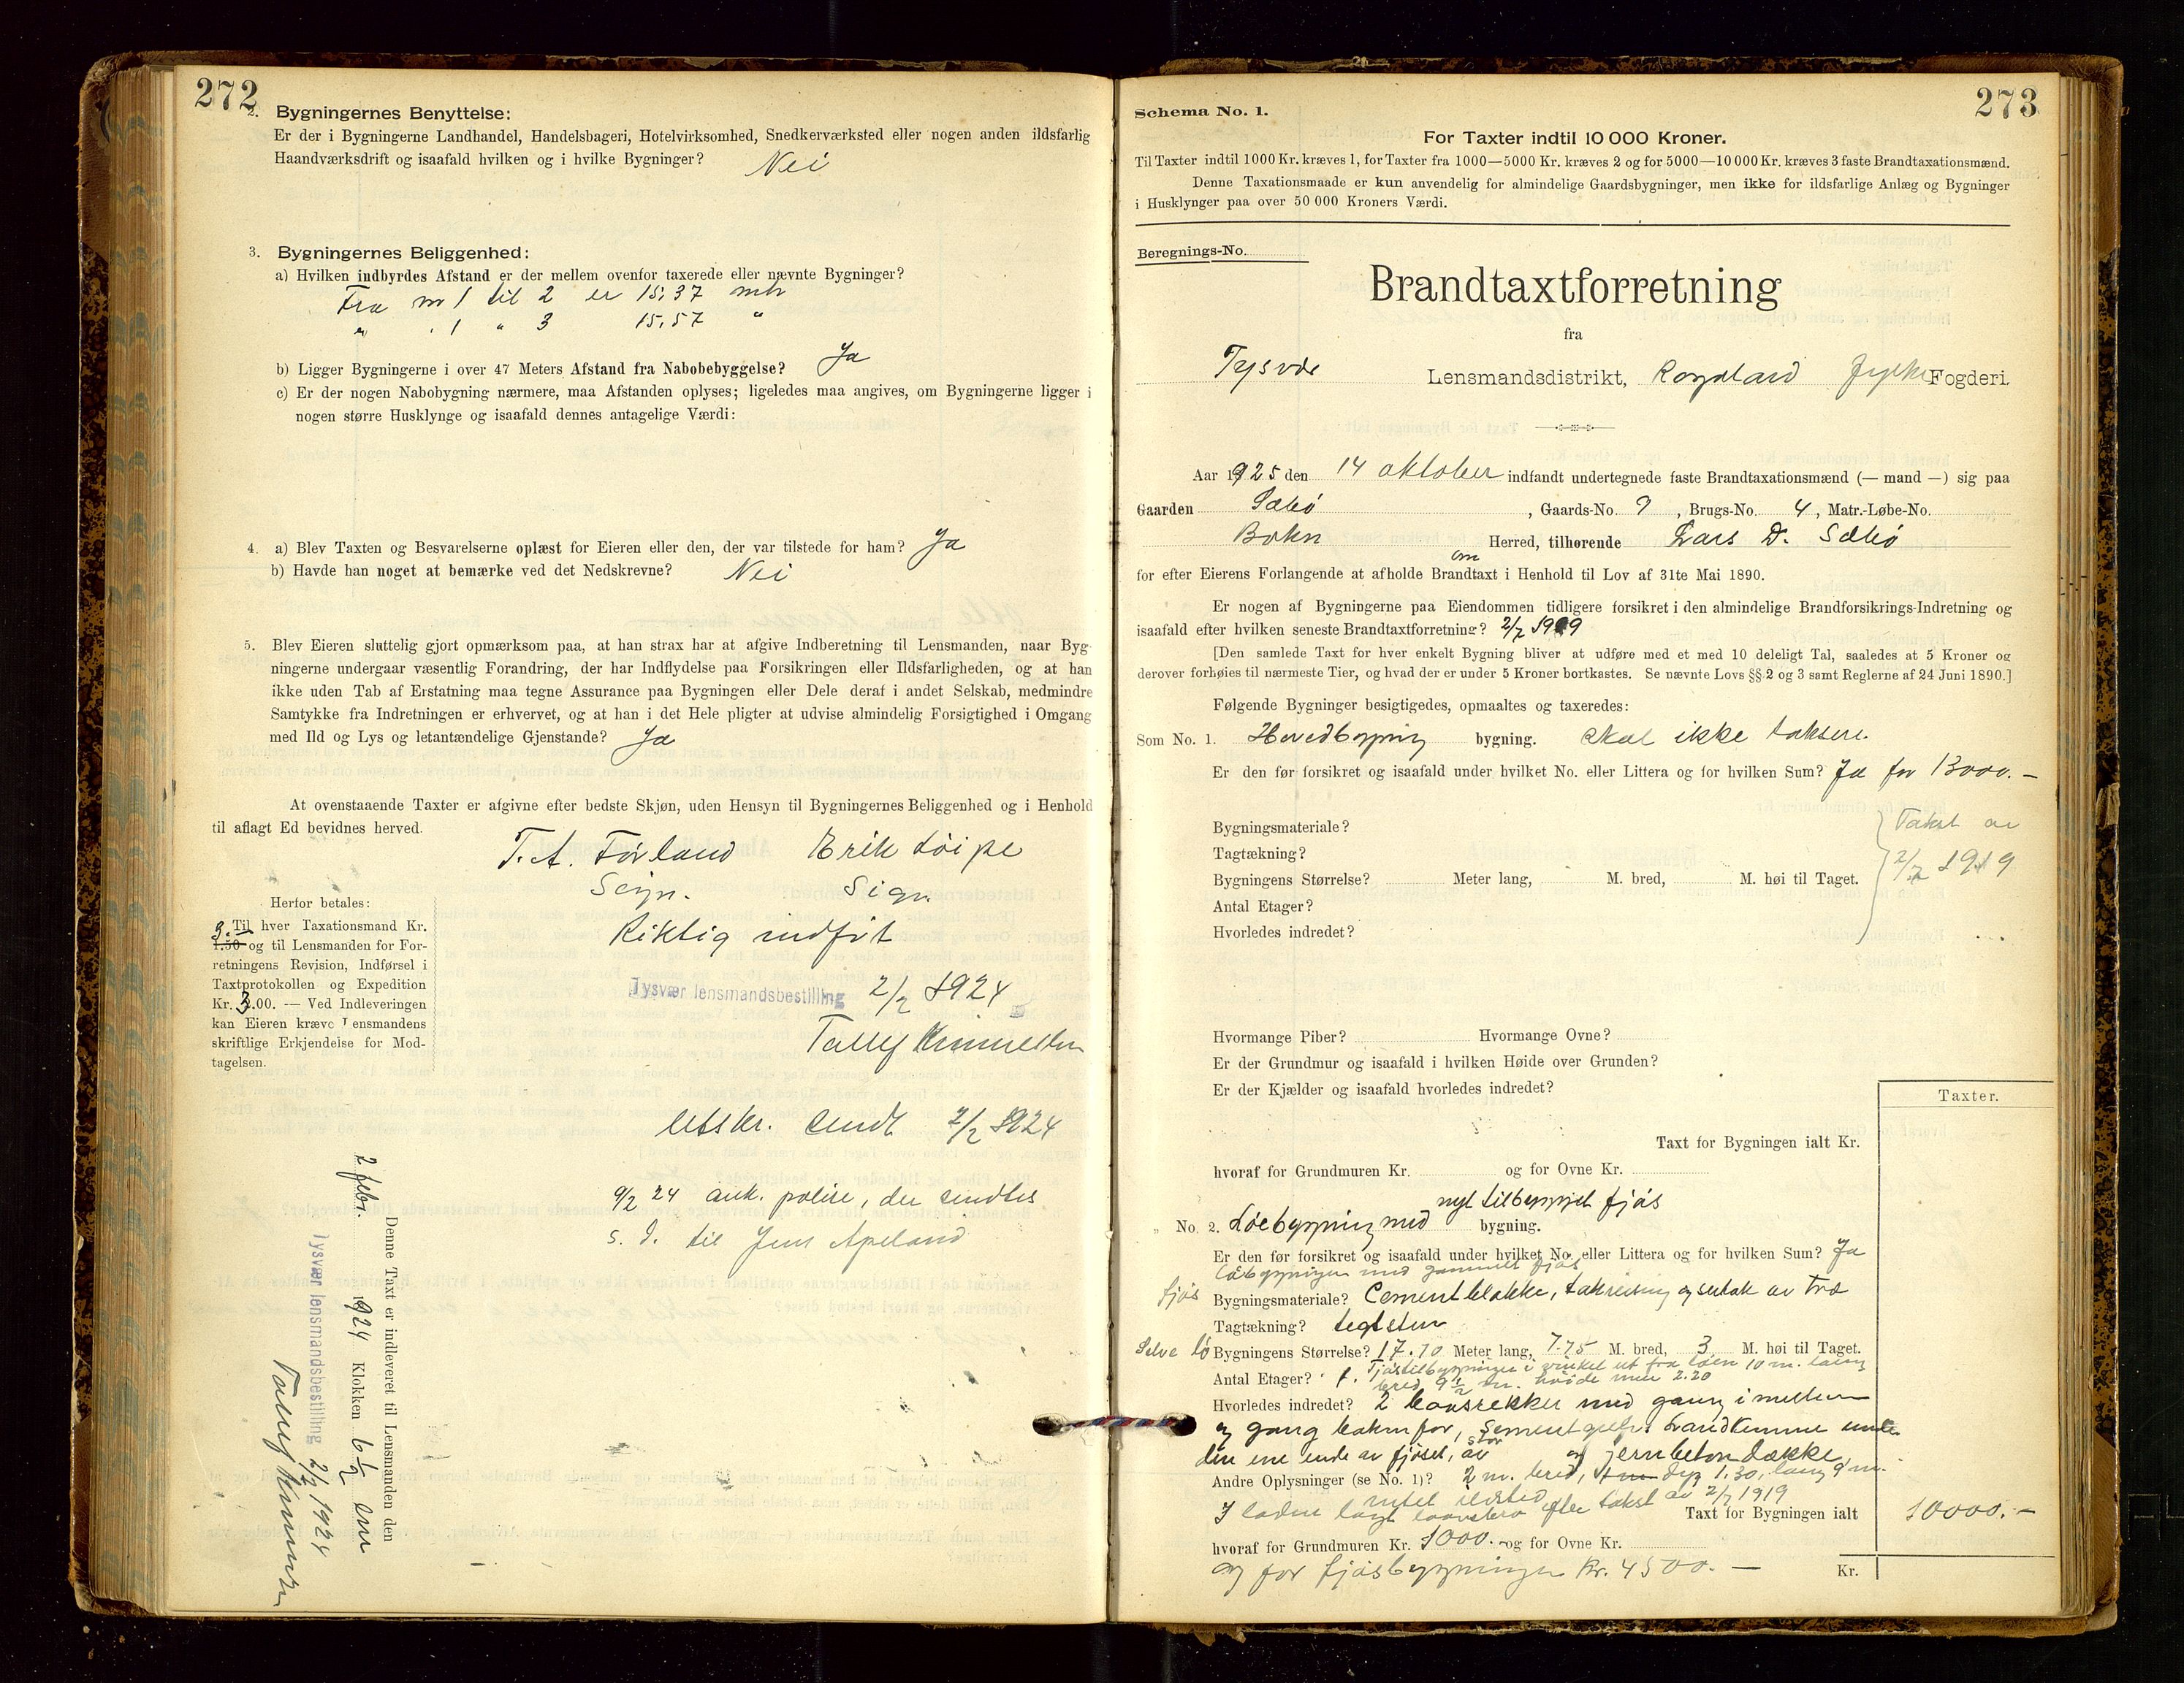 272
2. Bygningernes Benyttelse:
Er der i Bygningerne Landhandel, Handelsbageri, Hotelvirksomhed, Snedkerværksted eller nogen anden ildsfarlig
Haandværksdrift og isaafald hvilken og i hvilke Bygninger? Nei
3. Bygningernes Beliggenhed:
a) Hvilken indbyrdes Afstand er der mellem ovenfor taxerede eller nævnte Bygninger?
Fra nr 1 til 2 er 15,37 mtr
" " 1 " 3 15,57 "
b) Ligger Bygningerne i over 47 Meters Afstand fra Nabobebyggelse? Ja
c) Er der nogen Nabobygning nærmere, maa Afstanden oplyses; ligeledes maa angives, om Bygningerne ligger i
nogen større Husklynge og isaafald dennes antagelige Værdi:
4. a) Blev Taxten og Besvarelserne oplæst for Eieren eller den, der var tilstede for ham? Ja
b) Havde han noget at bemærke ved det Nedskrevne? Nei
5. Blev Eieren sluttelig gjort opmærksom paa, at han strax har at afgive Indberetning til Lensmanden, naar Byg-
ningerne undergaar væsentlig Forandring, der har Indflydelse paa Forsikringen eller Ildsfarligheden, og at han
ikke uden Tab af Erstatning maa tegne Assurance paa Bygningen eller Dele deraf i andet Selskab, medmindre
Samtykke fra Indretningen er erhvervet, og at han i det Hele pligter at udvise almindelig Forsigtighed i Omgang
med Ild og Lys og letantændelige Gjenstande? Ja
At ovenstaaende Taxter er afgivne efter bedste Skjøn, uden Hensyn til Bygningernes Beliggenhed og i Henhold
til aflagt Ed bevidnes herved.
T. A. Førland Erik Løipe
Sign. Sign.
Riktig indført
Tysvær lensmandsbestilling 2/2 1924
Herfor betales:
3.- Til hver Taxationsmand Kr.
1.50 og til Lensmanden for For-
retningens Revision, Indførsel i
Taxtprotokollen og Expedition
Kr. 3.00. — Ved Indleveringen
kan Eieren kræve Lensmandens
skriftlige Erkjendelse for Mod-
tagelsen.
Utskr. sendt 2/2 1924
9/2 24 ank. polise, der sendtes
s. d. til Jens Apeland
Denne Taxt er indleveret til Lensmanden den
2 febr. 1924 Klokken 6 1/2 em
Tysvær lensmandsbestilling 2/2 1924
273
Schema No. 1.
For Taxter indtil 10 000 Kroner.
Til Taxter indtil 1000 Kr. kræves 1, for Taxter fra 1000—5000 Kr. kræves 2 og for 5000—10 000 Kr. kræves 3 faste Brandtaxationsmænd.
Denne Taxationsmaade er kun anvendelig for almindelige Gaardsbygninger, men ikke for ildsfarlige Anlæg og Bygninger
i Husklynger paa over 50 000 Kroners Værdi.
Beregnings-No.
Brandtaxtforretning
fra
Tysvær Lensmandsdistrikt, Rogaland fylke Fogderi.
Aar 1925 den 14 oktober indfandt undertegnede faste Brandtaxationsmænd (— mand —) sig paa
Gaarden Sæbø, Gaards-No. 9, Brugs-No. 4, Matr.-Løbe-No.
Bokn Herred, tilhørende Lars D. Sæbø
for efter Eierens Forlangende om at afholde Brandtaxt i Henhold til Lov af 31te Mai 1890.
Er nogen af Bygningerne paa Eiendommen tidligere forsikret i den almindelige Brandforsikrings-Indretning og
isaafald efter hvilken seneste Brandtaxtforretning? 2/7 1919
[Den samlede Taxt for hver enkelt Bygning bliver at udføre med et med 10 deleligt Tal, saaledes at 5 Kroner og
derover forhøies til nærmeste Tier, og hvad der er under 5 Kroner bortkastes. Se nævnte Lovs §§ 2 og 3 samt Reglerne af 24 Juni 1890.]
Følgende Bygninger besigtigedes, opmaaltes og taxeredes:
Som No. 1. Hovedbygning bygning. Skal ikke takseres
Er den før forsikret og isaafald under hvilket No. eller Littera og for hvilken Sum? Ja for 13000.-
Bygningsmateriale? Takst av
Tagtækning? 2/7 1919
Bygningens Størrelse? Meter lang, M. bred, M. høi til Taget.
Antal Etager?
Hvorledes indredet?
Hvormange Piber? Hvormange Ovne?
Er der Grundmur og isaafald i hvilken Høide over Grunden?
Er der Kjælder og isaafald hvorledes indredet?
Taxter.
Taxt for Bygningen ialt Kr.
hvoraf for Grundmuren Kr. og for Ovne Kr.
" No. 2. Løebygning med nyt tilbygget fjøs bygning.
Er den før forsikret og isaafald under hvilket No. eller Littera og for hvilken Sum? Ja
løbygningen med gammelt fjøs
fjøs Bygningsmateriale? Cementblokke, takreisning og sutak av træ
Tagtækning? teglsten
Selve lø Bygningens Størrelse? 17.70 Meter lang, 7.75 M. bred, 3 M. høi til Taget.
Antal Etager? 1. Fjøstilbygningen i vinkel ut fra løen 10 m. lang
bred 9 1/2 m. høide 2.20
Hvorledes indredet? 2 baasrekker med gang imellem
og gang bakenfor, sementgulv. Landkumme under
den ene ende av fjøset, av og jernbetondække
Andre Oplysninger (se No. 1)? 2 m. bred, dyp 1.30, lang 9 m.
efter takst av 2/7 1919
Taxt for Bygningen ialt 10000.-
hvoraf for Grundmuren Kr. 1000.- og for Ovne Kr.
og for fjøsbygningen kr. 4500.- Kr.